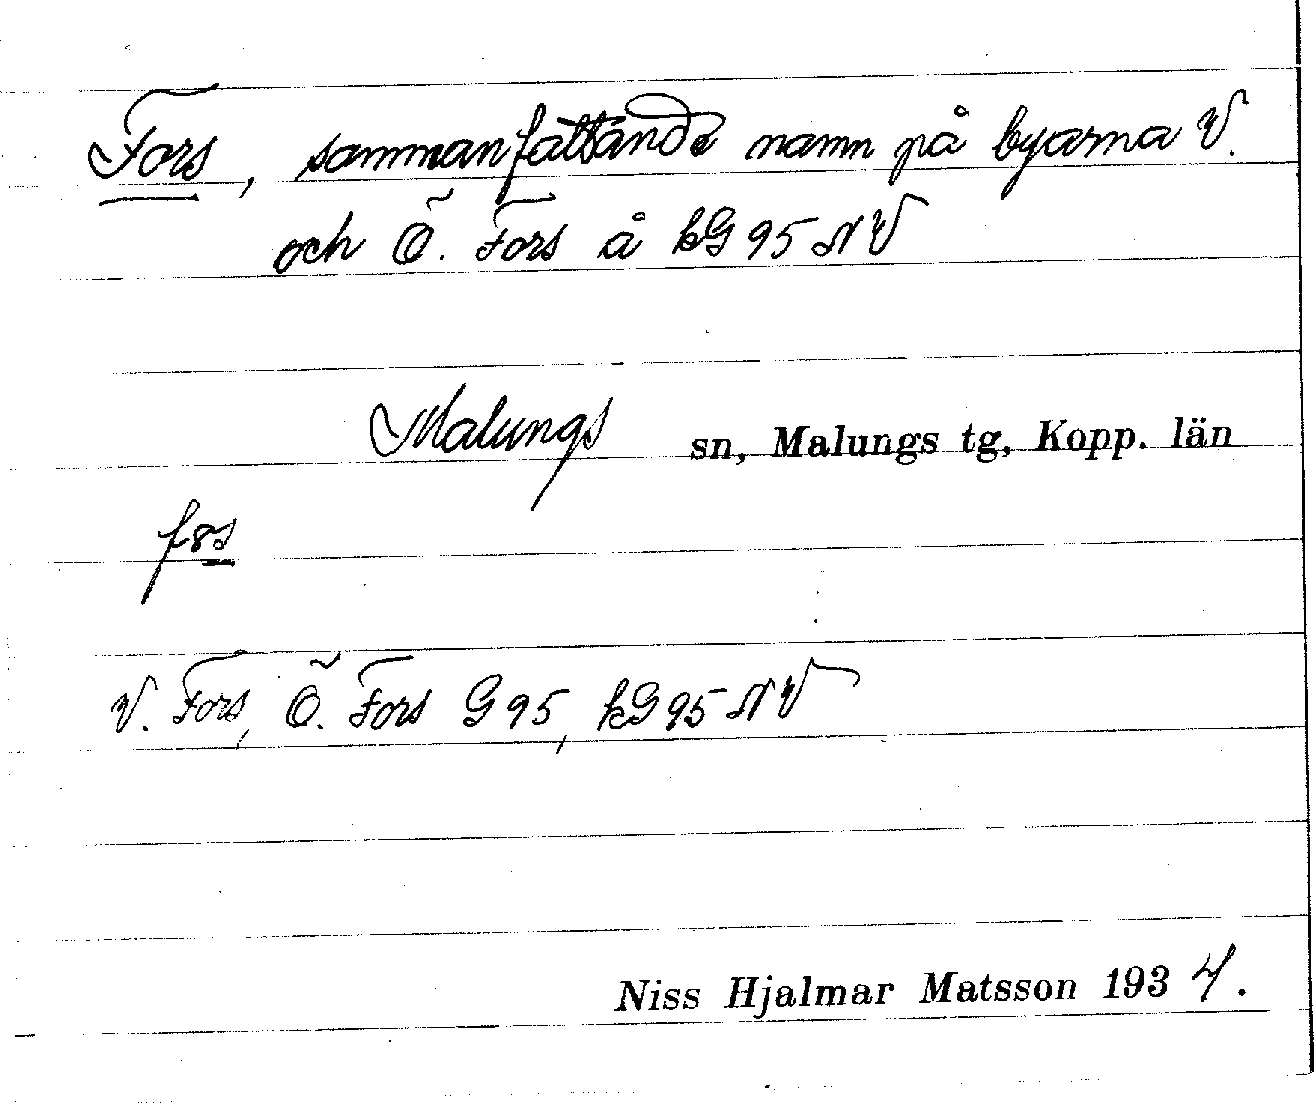 Fors, sammanfattande namn på byarna V.
och Ö. Fors å kG95NV
Malungs sn, Malungs tg, Kopp. län
V. Fors, Ö. Fors G95, kG95NV
Niss Hjalmar Matsson 1934.